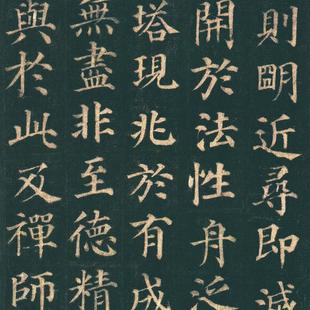 則明近尋即滅
開於法性舟泛
塔現兆於有成
無盡非至德精
與於此及禪師